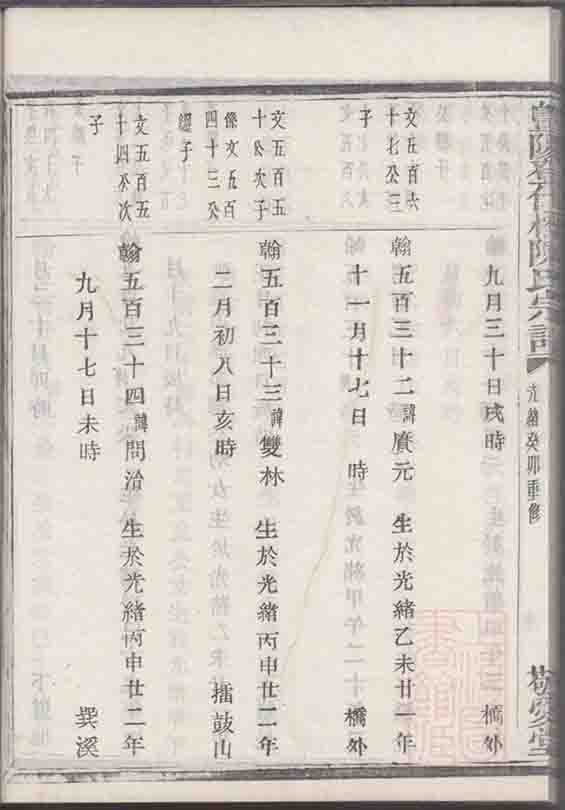 九月三十日戌時
橋外
文五百六
十七公三
子
翰五百三十二諱廣元 生於光緒乙未廿一年
十一月十七日 時
橋外
文五百五
十公次子
係文五百
四十三公
繼子
翰五百三十三諱雙林 生於光緒丙申廿二年
二月初八日亥時
擂鼓山
文五百五
十四公次
子
翰五百三十四諱問治 生於光緒丙申廿二年
九月十七日未時
巽溪
陳氏宗譜
光緒癸卯重修
敬愛堂